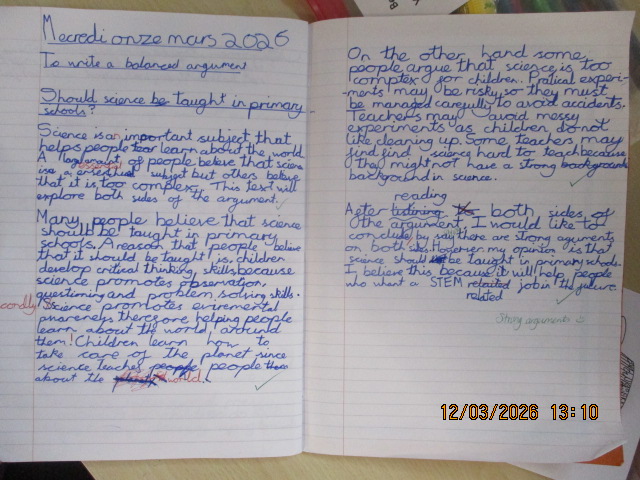 Mecredi onze mars 2026
To write a balanced argument
Should science be taught in primary
schools?
Science is an important subject that
helps people learn about the world
A lage amount of people belive that science
is a essential subject but others belive
that it is too complex. This text will
explore both sides of the argument.
Many people believe that science
should be taught in primary
schools. A reason that people believe
that it should be taught is children
develop critical thinking skills because
science promotes observation,
questioning and problem solving skills.
condly Science promotes enviremental
awareness therefore helping people
learn about the world around
them! Children learn how to
take care of the planet since
science teaches people
about the world.
On the other hand some
people argue that science is too
complex for children. Pratical experi-
-ments may be risky so they must
be managed carefully to avoid accidents.
Teachers may avoid messy
experiments as children do not
like cleaning up. Some teachers may
find find science hard to teach because
they might not have a strong backgroud
background in science.
reading
After listining both sides of
the argument, I would like to
conclude by say there are strong arguments
on both. However my opinion is that
science should be taught in primary schools.
I believe this because it will help people
who whant a STEM relaited job in the future.
related
Strong arguments
12/03/2026 13:10